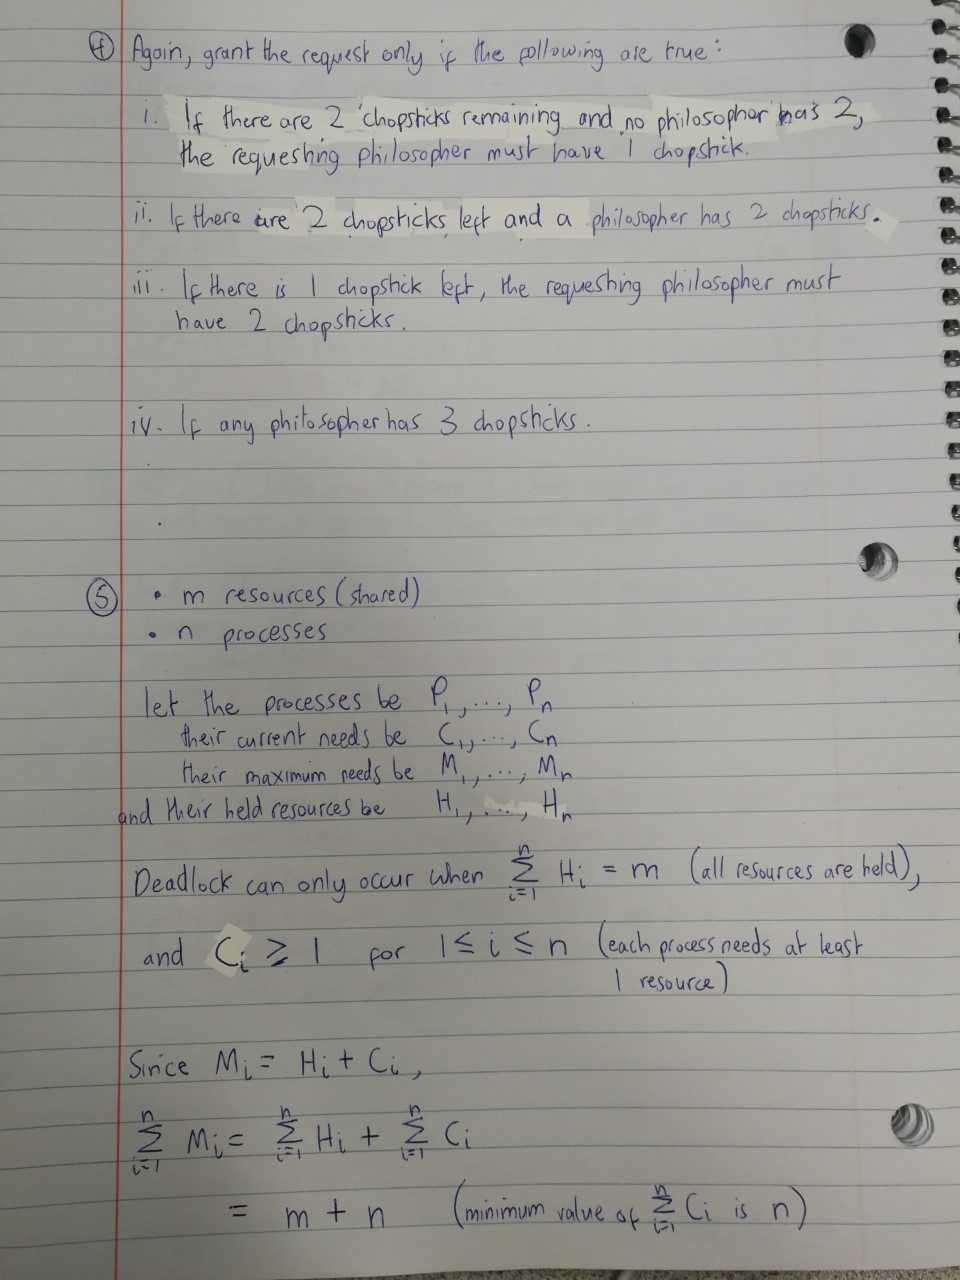 ④ Again, grant the request only if the following are true:
i. If there are 2 chopsticks remaining and no philosopher has 2,
the requesting philosopher must have 1 chopstick.
ii. If there are 2 chopsticks left and a philosopher has 2 chopsticks.
iii. If there is 1 chopstick left, the requesting philosopher must
have 2 chopsticks.
iv. If any philosopher has 3 chopsticks.
⑤ • m resources (shared)
• n processes
let the processes be P₁, ..., Pₙ
their current needs be C₁, ..., Cₙ
their maximum needs be M₁, ..., Mₙ
and their held resources be H₁, ..., Hₙ
Deadlock can only occur when ∑ⁿᵢ₌₁ Hᵢ = m (all resources are held),
and Cᵢ ≥ 1 for 1 ≤ i ≤ n (each process needs at least
1 resource)
Since Mᵢ = Hᵢ + Cᵢ,
∑ⁿᵢ₌₁ Mᵢ = ∑ⁿᵢ₌₁ Hᵢ + ∑ⁿᵢ₌₁ Cᵢ
= m + n (minimum value of ∑ⁿᵢ₌₁ Cᵢ is n)